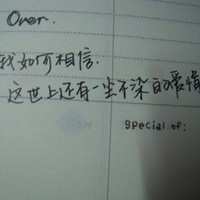 Over.
我如何相信.
这世上还有一尘不染的爱情
Special of: